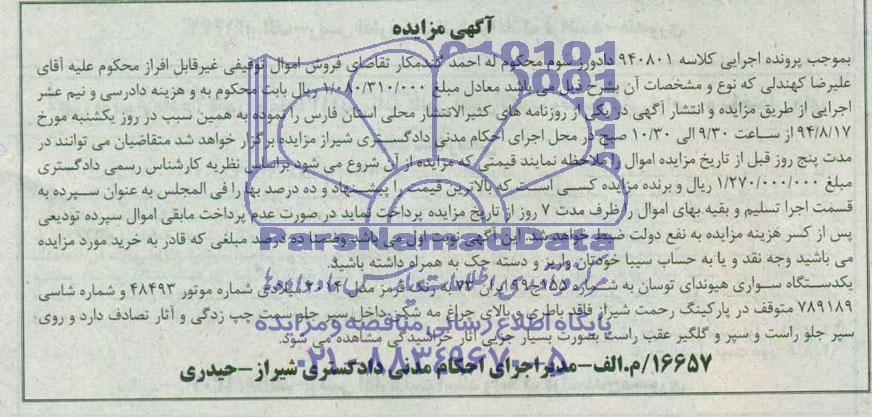 آگهی مزایده
بموجب پرونده اجرایی کلاسه ۹۴۰۸۰۱ دادورز سوم محکوم له احمد گندمکار تقاضای فروش اموال توقیفی غیرقابل افراز محکوم علیه آقای
علیرضا کهندلی که نوع و مشخصات آن بشرح ذیل می باشد معادل مبلغ ۱/۰۸۰/۳۱۰/۰۰۰ ریال بابت محکوم به و هزینه دادرسی و نیم عشر
اجرایی از طریق مزایده و انتشار آگهی در یکی از روزنامه های کثیرالانتشار محلی استان فارس را نموده به همین سبب در روز یکشنبه مورخ
۹۴/۸/۱۷ از ساعت ۹/۳۰ الی ۱۰/۳۰ صبح در محل اجرای احکام مدنی دادگستری شیراز مزایده برگزار خواهد شد متقاضیان می توانند در
مدت پنج روز قبل از تاریخ مزایده اموال را ملاحظه نمایند قیمتی که مزایده از آن شروع می شود براساس نظریه کارشناس رسمی دادگستری
مبلغ ۱/۲۷۰/۰۰۰/۰۰۰ ریال و برنده مزایده کسی است که بالاترین قیمت را پیشنهاد و ده درصد بها را فی المجلس به عنوان سپرده به
قسمت اجرا تسلیم و بقیه بهای اموال را ظرف مدت ۷ روز از تاریخ مزایده پرداخت نماید در صورت عدم پرداخت مابقی اموال سپرده تودیعی
پس از کسر هزینه مزایده به نفع دولت ضبط خواهد شد. این آگهی نوبت اول می باشد وضمنا ده درصد مبلغی که قادر به خرید مورد مزایده
می باشید وجه نقد و یا به حساب سیبا خودتان واریز و دسته چک به همراه داشته باشید.
یکدستگاه سواری هیوندای توسان به شماره ۱۵۵ ایران ۷۳ به رنگ قرمز مدل ۲۰۱۴ میلادی شماره موتور ۴۸۴۹۳ و شماره شاسی
۷۸۹۱۸۹ متوقف در پارکینگ رحمت شیراز فاقد باطری و بالای چراغ مه شکن داخل سپر جلو سمت چپ زدگی و آثار تصادف دارد و روی
سپر جلو راست و سپر و گلگیر عقب راست بصورت بسیار جزیی آثار خراشیدگی مشاهده می شود.
۱۶۶۵۷/م.الف-مدیر اجرای احکام مدنی دادگستری شیراز-حیدری
ParsNamadData
پایگاه اطلاع رسانی مناقصه و مزایده
۰۲۱-۸۸۳۴۹۶۷۰-۵